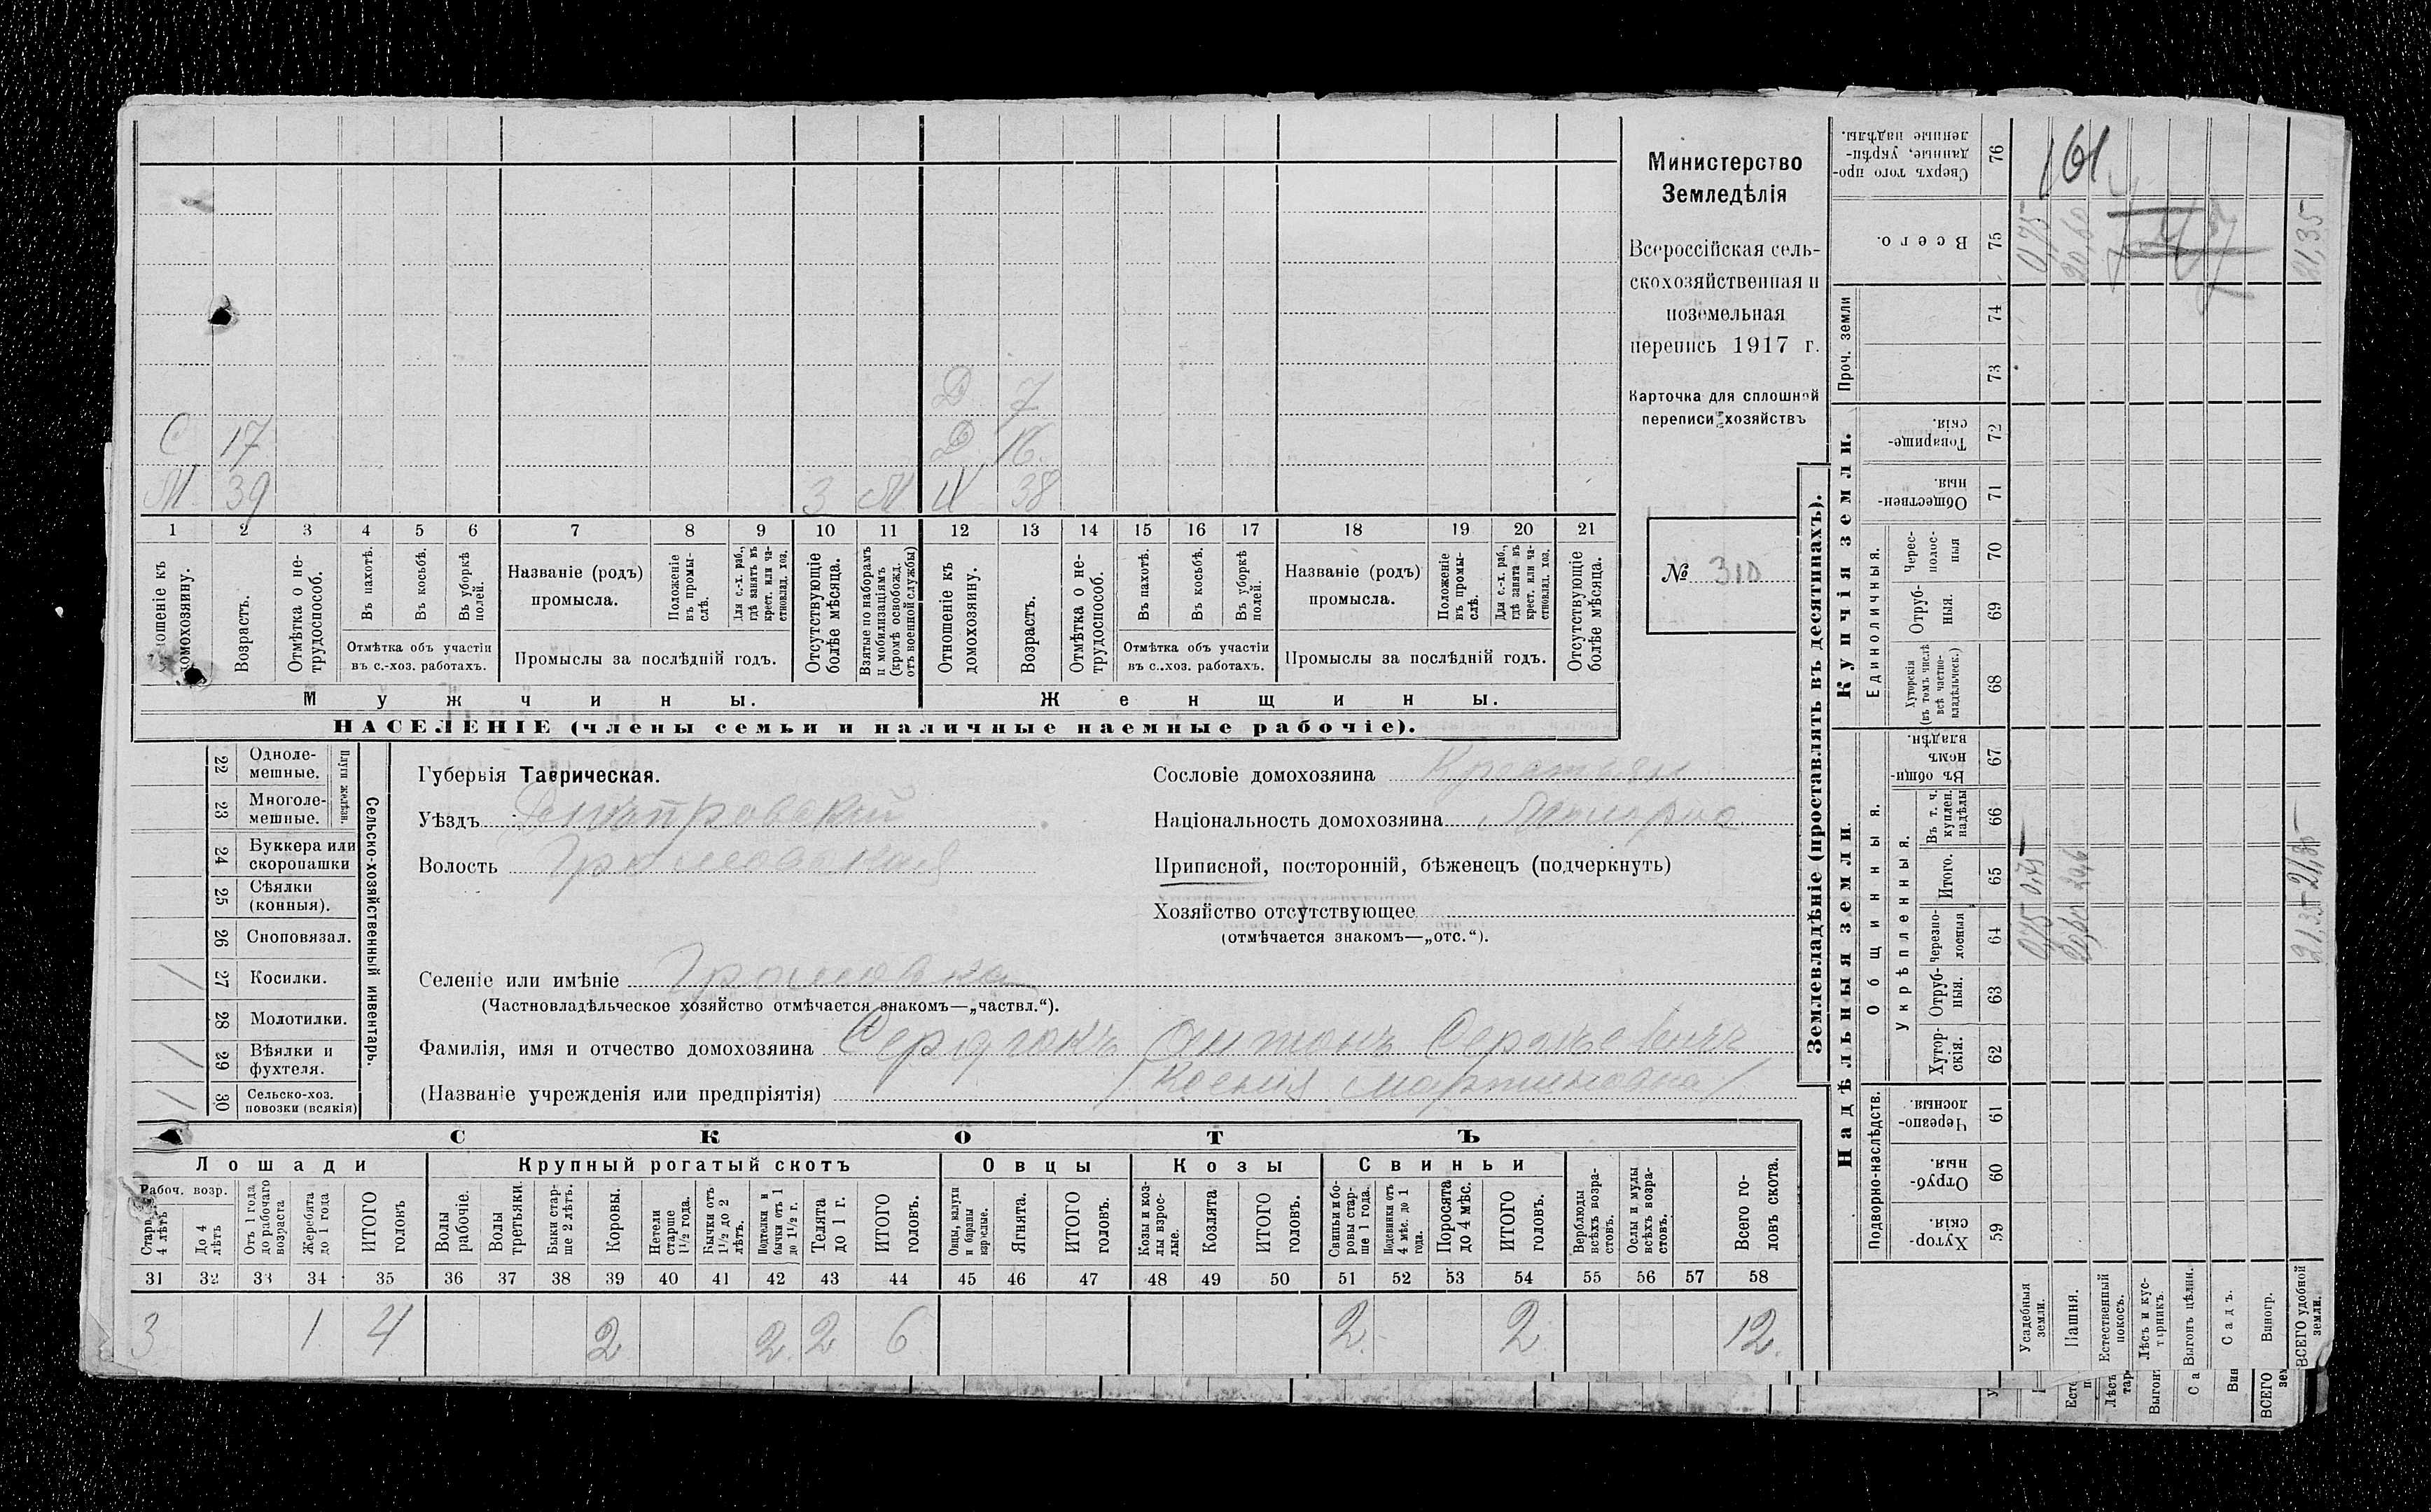 Д 7
С 17 Д 16.
М 39 3 М М 38
1 2 3 4 5 6 7 8 9 10 11 12 13 14 15 16 17 18 19 20 21
Отношеніе къ домохозяину.
Возрастъ.
Отмѣтка о не-трудоспособ.
Въ пахотѣ.
Въ косьбѣ.
Въ уборкѣ полей.
Отмѣтка объ участіи
въ с.-хоз. работахъ.
Названіе (родъ)
промысла.
Положеніе въ промы-слѣ.
Для с.-х. раб., гдѣ занятъ въ крест. или ча-стновлад. хоз.
Промыслы за послѣдній годъ.
Отсутствующіе болѣе мѣсяца.
Взятые по наборамъ и мобилизаціямъ (кромѣ освобожд. отъ военной службы)
Отношеніе къ домохозяину.
Возрастъ.
Отмѣтка о не-трудоспособ.
Въ пахотѣ.
Въ косьбѣ.
Въ уборкѣ полей.
Отмѣтка объ участіи
въ с..хоз. работахъ.
Названіе (родъ)
промысла.
Положеніе въ промы-слѣ.
Для с.-х. раб., гдѣ занята въ крест. или ча-стновлад. хоз.
Промыслы за послѣдній годъ.
Отсутствующіе болѣе мѣсяца.
Мужчины. Женщины.
НАСЕЛЕНІЕ (члены семьи и наличные наемные рабочіе).
Министерство
Земледѣлія
Всероссійская сель-
скохозяйственная и
поземельная
перепись 1917 г.
Карточка для сплошной
переписи хозяйствъ
№ 310
22 Одноле-мешные.
23 Многоле-мешные.
Плуги желѣзн.
24 Буккера или скоропашки
25 Сѣялки (конныя).
26 Сноповязал.
/ 27 Косилки.
28 Молотилки.
/ 29 Вѣялки и фухтеля.
/ 30 Сельско-хоз. повозки (всякія)
Сельско-хозяйственный инвентарь.
Губернія Таврическая.
Уѣздъ Днѣпровскій
Волость Громовская
Селеніе или имѣніе Громовка
(Частновладѣльческое хозяйство отмѣчается знакомъ—„частвл.“).
Фамилія, имя и отчество домохозяина Сердюкъ Антонъ Сергѣевичъ
(Названіе учрежденія или предпріятія) /Ксенія Мартиновна/
Сословіе домохозяина Крестьян
Національность домохозяина
Приписной, посторонній, бѣженецъ (подчеркнуть)
Хозяйство отсутствующее
(отмѣчается знакомъ—„отс.“).
СКОТЪ
Лошади Крупный рогатый скотъ Овцы Козы Свиньи
Рабоч. возр.
Старше 4 лѣтъ
До 4 лѣтъ
Отъ 1 года до рабочаго возраста
Жеребята до 1 года
ИТОГО головъ
Волы рабочіе.
Волы третьяки.
Быки стар-ше 2 лѣтъ.
Коровы.
Нетели старше 1½ года.
Бычки отъ 1½ до 2 лѣтъ.
Подтелки и бычки отъ 1 до 1½ г.
Телята до 1 г.
ИТОГО головъ.
Овцы, валухи и бараны взрослые.
Ягнята.
ИТОГО головъ.
Козы и коз-лы взрос-лые.
Козлята
ИТОГО головъ.
Свиньи и бо-ровы стар-ше 1 года.
Подсвинки отъ 4 мѣс. до 1 года.
Поросята до 4 мѣс.
ИТОГО головъ.
Верблюды всѣхъ возра-стовъ.
Ослы и мулы всѣхъ возра-стовъ.
Всего го-ловъ скота.
31 32 33 34 35 36 37 38 39 40 41 42 43 44 45 46 47 48 49 50 51 52 53 54 55 56 57 58
3 1 4 2 2. 2 6 2. 2 12.
Землевладѣніе (проставлять въ десятинахъ).
Надѣльныя земли. Купчія земли. Проч. земли
Подворно-наслѣдств. Общинныя. Укрѣпленныя. Единоличныя.
Хутор-скія. 59
Отруб-ныя. 60
Черезпо-лосныя. 61
Хутор-скія. 62
Отруб-ныя. 63
черезпо-лосныя 64
Итого. 65
Въ т. ч. куплен. надѣлы 66
Въ общин-номъ владѣн. 67
Хуторскія (въ томъ числѣ всѣ частно-владѣльческ.) 68
Отруб-ныя. 69
Черес-полос-ныя 70
Обществен-ныя. 71
Товарище-скія. 72
73
74
Всего. 75
Сверхъ того про-данные, укрѣп-ленные надѣлы. 76
Усадебныя земли. 0,75 0,75 0,75
Пашня. 20,60
Естественный покосъ.
Лѣсъ и кус-тарникъ.
Выгонъ цѣлин.
Садъ.
Виногр.
ВСЕГО удобной земли. 21,35 21,35 21,35
161